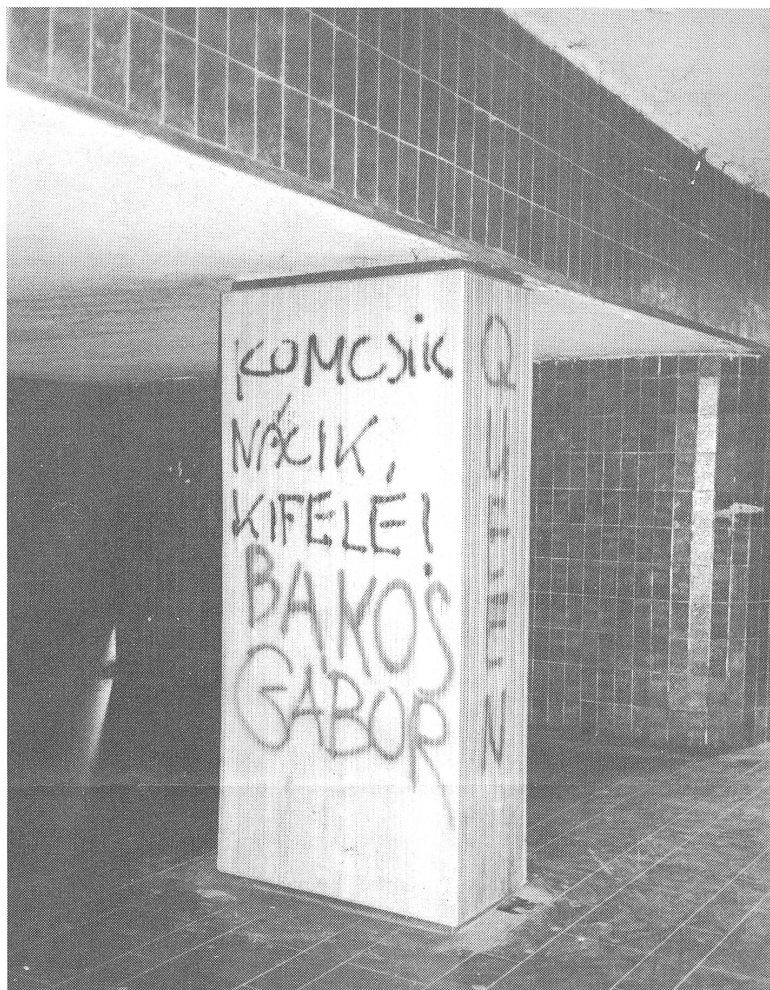 KOMCSIK
NÁCIK,
KIFELÉ!
BAKOS
GÁBOR
QUEEN